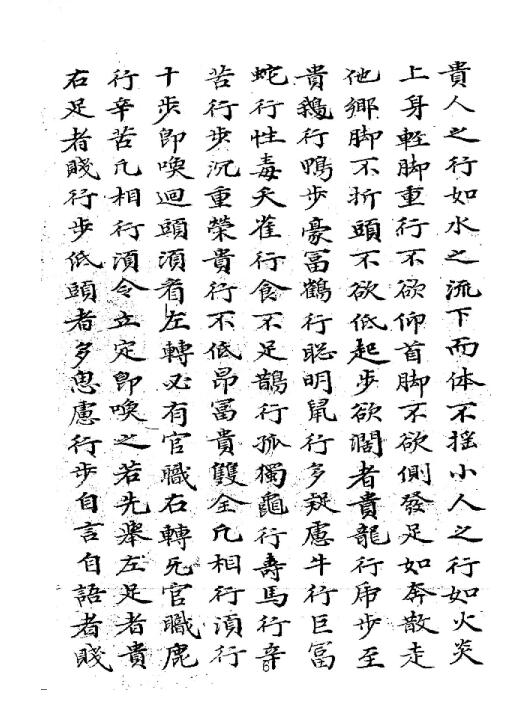 貴人之行如水之流下而体不揺小人之行如火炎
上身軽脚重行不欲仰首脚不欲側發足如奔散走
他郷脚不折頭不欲低起步欲闊者貴龍行虎步至
貴鵝行鴨步豪冨鶴行聡明鼠行多疑慮牛行巨冨
蛇行性毒夭雀行食不足鵲行孤獨龜行壽馬行辛
苦行步沉重榮貴行不低昂冨貴雙全凡相行湏行
十步即喚迴頭湏看左轉必有官職右轉无官職鹿
行辛苦凡相行湏令立定即喚之若先舉左足者貴
右足者賤行步低頭者多思慮行步自言自語者賤